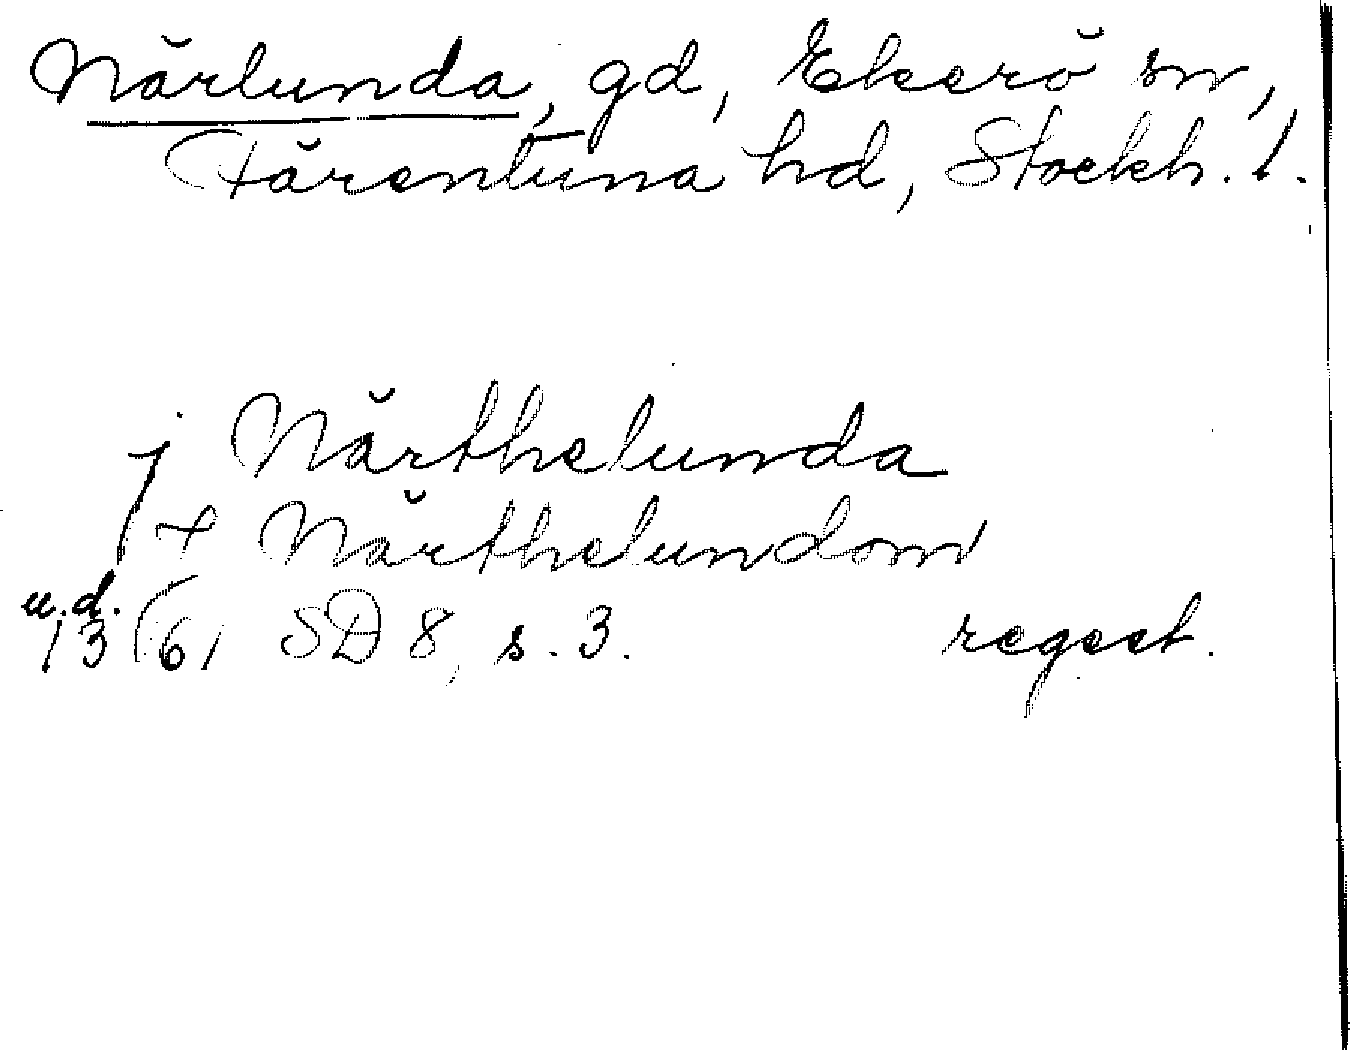 Närlunda, gd, Ekerö sn,
Färentuna hd, Stockh. l.
j Närthelunda
+ Närthelundom
u.d.
13(61 SD 8, s. 3. regest.